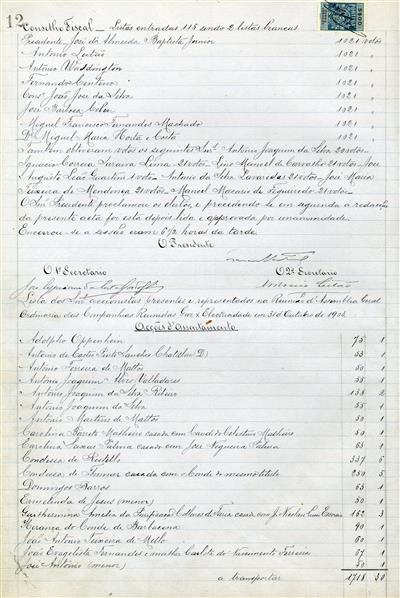 12
Conselho Fiscal — Listas entradas 115 sendo 2 listas brancas
Presidente José de Almeida Baptista Junior 1021 votos
Antonio Leitão 1021 "
Antonio Waddington 1021 "
Fernandes Centeno 1021 "
Consº João José da Silva 1021 "
José Barbosa 1021 "
Miguel Francisco Fernandes Machado 1021 "
Dr Miguel Maria Horta e Costa 1021 "
Tambem obtiveram votos os seguintes Snrs. Antonio Joaquim da Silva 20 votos—
Ignacio Correia Saraiva Lima — 21 votos — Lino Manoel de Carvalho 21 votos — José
Augusto Leão Quartim 1 voto — Antonio da Silva 21 votos — José Maria
Teixeira de Mendonça 21 votos — Manoel Macario de Figueiredo 21 votos —
O Snr Presidente proclamou os eleitos, e procedendo-se em seguida a redacção
da presente acta foi esta depois lida e approvada por unanimidade.
Encerrou-se a sessão eram 6 1/2 horas da tarde.
O Presidente
O 1º Secretario O 2º Secretario
Antonio Leitão
Lista dos Snrs accionistas presentes e representados na Reunião d'Assemblea Geral
Ordinaria das Companhias Reunidas Gaz e Electricidade em 31 d'Outubro de 1904
Acções d'Assentamento
Adolpho Oppenheim 75 1
Antonio de Castro Pinto Sanches Chatillon (D) 53 1
Antonio Ferreira de Mattos 50 1
Antonio Joaquim Alves Valladares 55 1
Antonio Joaquim da Silva 138 2
Antonio Joaquim da Silva 55 1
Antonio Martins de Mattos 50 1
Carolina Matheiro casada com Conde de Calestin Mathieu 50 1
Carolina Seixas Palma casada com José Nogueira Palma 63 1
Condessa de Restello 337 6
Condessa de Thomar casada com o Conde do mesmo titulo 250 5
Domingos Barros 63 1
Ermelinda de Jesus (menor) 50 1
Guilhermina Amelia da Purificação Collares de Faria casada com J. Nicolau 162 3
Herança do Conde de Barbacena 90 1
João Antonio Teixeira de Mello 60 1
João Evagelista Fernandes e mulher Carlota do Nascimento Ferreira 67 1
José Antonio (menor) 50 1
a transportar 1718 30